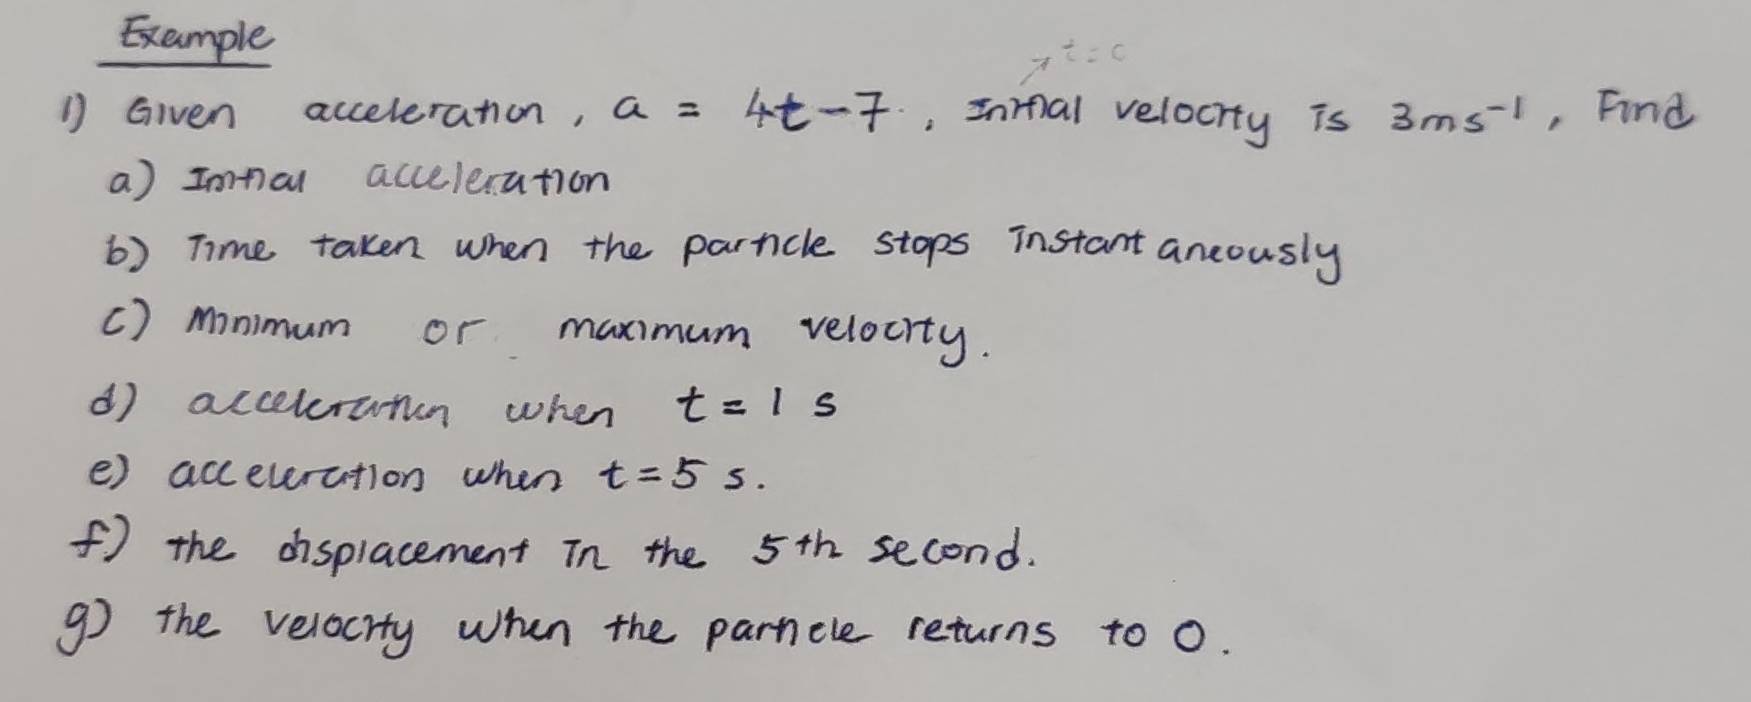 Example
t=0
1) Given acceleration, a = 4t-7, Initial velocity is 3ms⁻¹, Find
a) Initial acceleration
b) Time taken when the particle stops instantaneously
c) Minimum or maximum velocity.
d) acceleration when t=1 s
e) acceleration when t=5 s.
f) the displacement in the 5th second.
g) the velocity when the particle returns to O.